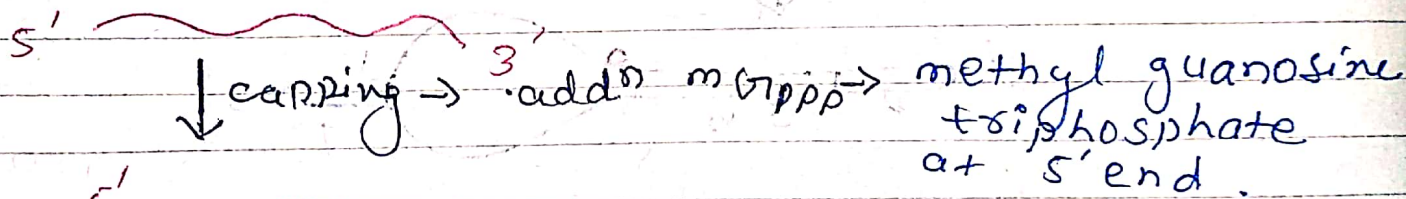 5'
3'
capping → addn mGppp → methyl guanosine
triphosphate
at 5' end.